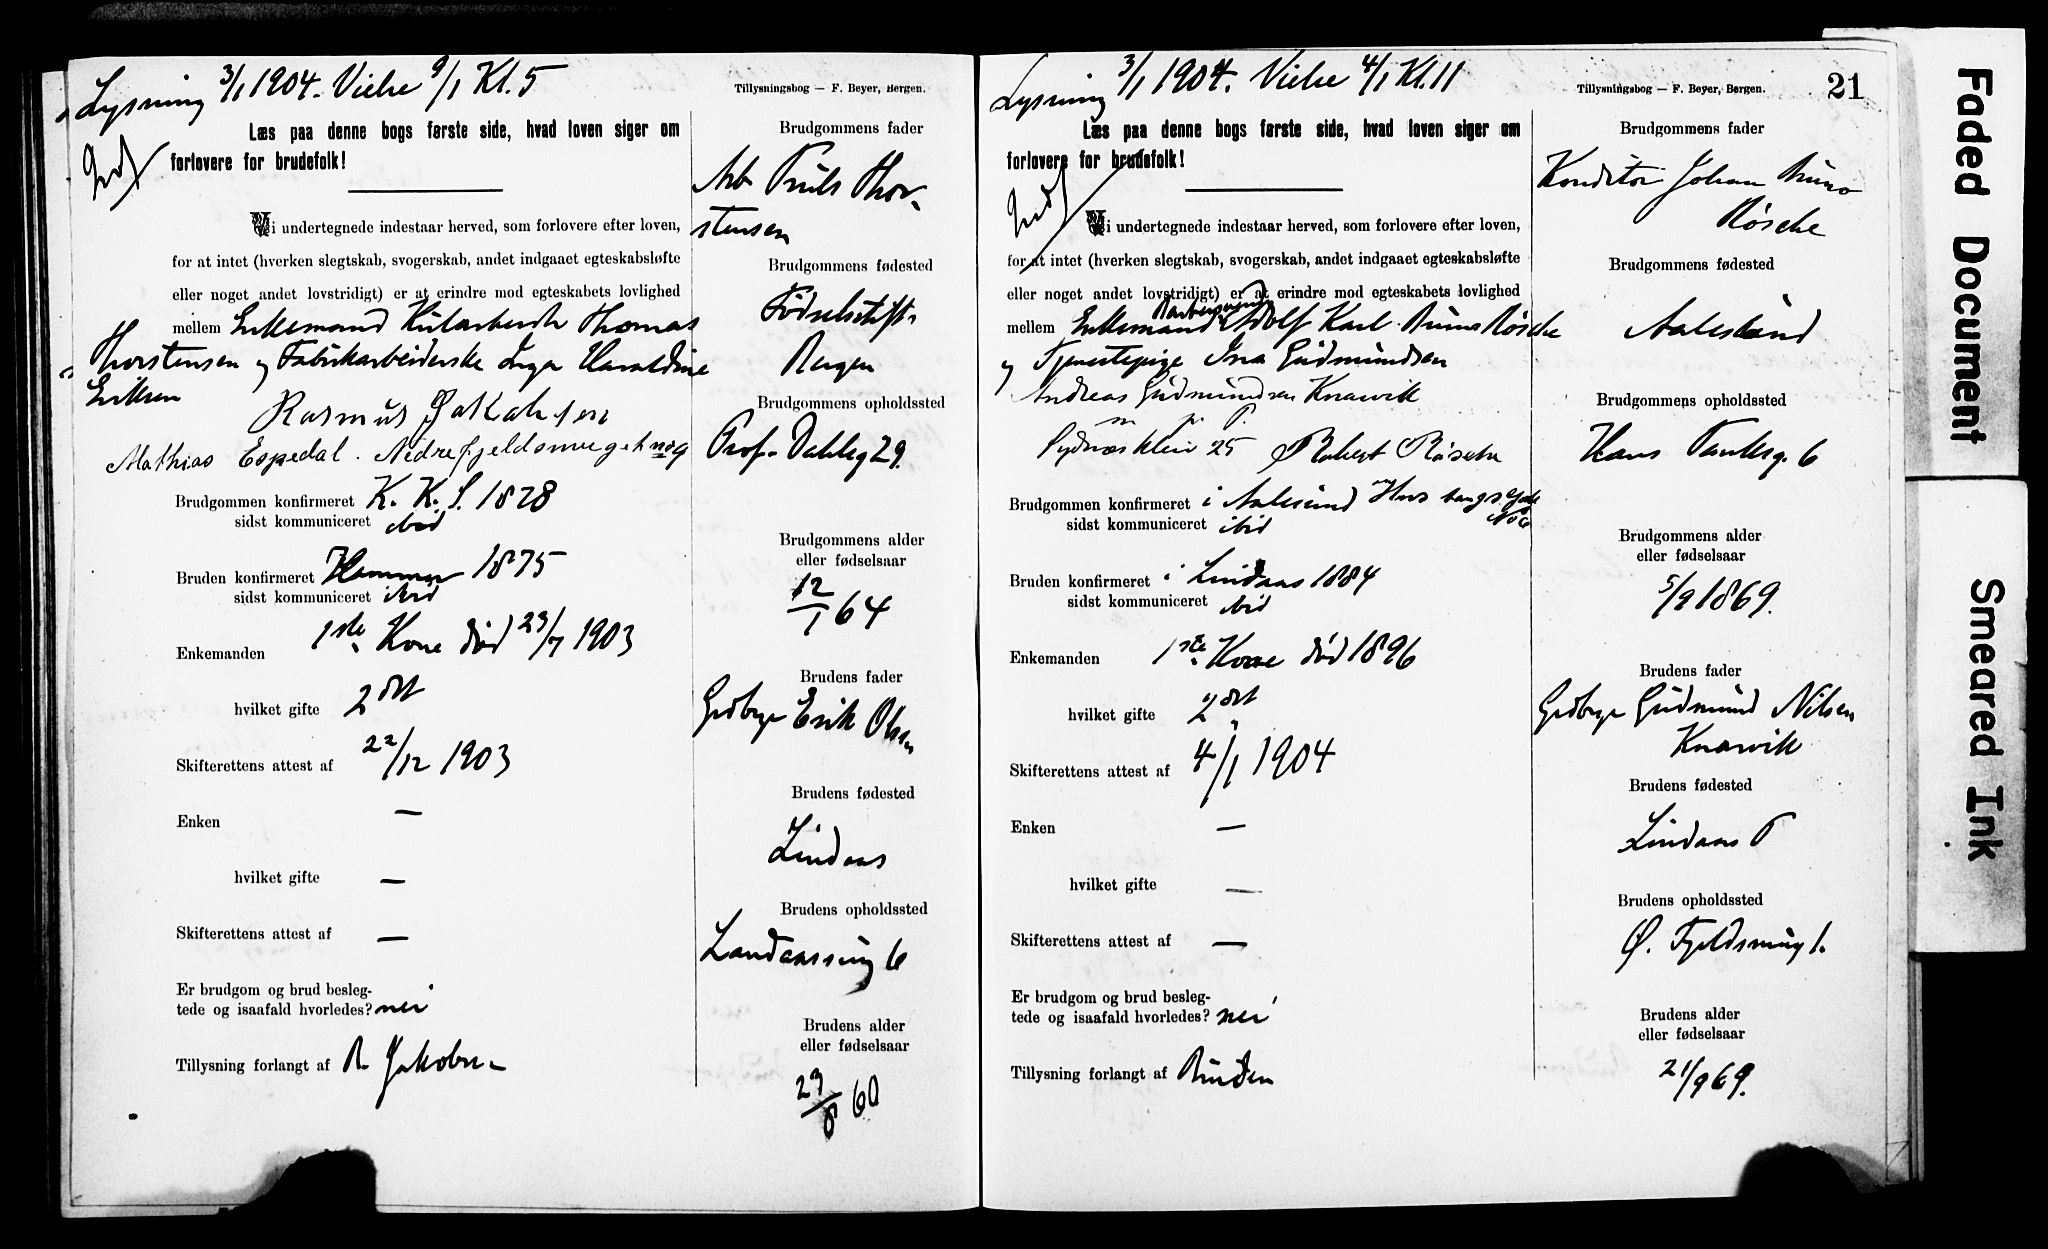 Lysning 3/1 1904. Vielse 9/1 Kl. 5
Tillysningsbog — F. Beyer, Bergen.
Indf
Læs paa denne bogs første side, hvad loven siger om
forlovere for brudefolk!
Vi undertegnede indestaar herved, som forlovere efter loven,
for at intet (hverken slegtskab, svogerskab, andet indgaaet egteskabsløfte
eller noget andet lovstridigt) er at erindre mod egteskabets lovlighed
mellem Enkemand Kularbeider Thomas
Thorstensen og Fabrikarbeiderske Inga Haraldine
Eriksen
Rasmus Jakobsen
Mathias Espedal. Nedre fjeldsmuget no 9
Brudgommen konfirmeret K. K. S. 1878
sidst kommuniceret ibid
Bruden konfirmeret Hammer 1875
sidst kommuniceret ibid
Enkemanden 1ste Kone død 23/7 1903
hvilket gifte 2det
Skifterettens attest af 22/12 1903
Enken —
hvilket gifte —
Skifterettens attest af —
Er brudgom og brud besleg-
tede og isaafald hvorledes? nei
Tillysning forlangt af R. Jakobsen
Brudgommens fader
Arb. Truls Thor-
stensen
Brudgommens fødested
Fødselsstift.
Bergen
Brudgommens opholdssted
Prof. Dahlsg 29.
Brudgommens alder
eller fødselsaar
12/1 64
Brudens fader
Grdbrgr Erik Olsen
Brudens fødested
Lindaas
Brudens opholdssted
Landaassvig 6
Brudens alder
eller fødselsaar
23/8 60
Lysning 3/1 1904. Vielse 4/1 Kl. 11
Tillysningsbog — F. Beyer, Bergen.
21
Indf
Læs paa denne bogs første side, hvad loven siger om
forlovere for brudefolk!
Vi undertegnede indestaar herved, som forlovere efter loven,
for at intet (hverken slegtskab, svogerskab, andet indgaaet egteskabsløfte
eller noget andet lovstridigt) er at erindre mod egteskabets lovlighed
Barbersvend
mellem Enkemand Adolf Karl Bruno Røsche
og Tjenestepige Ina Gudmundsen
Andreas Gudmundsen Knarvik
m. p. P.
Sydnæskleiv 25 Robert Røsche
Brudgommen konfirmeret i Aalesund
sidst kommuniceret ibid
Bruden konfirmeret i Lindaas 1884
sidst kommuniceret ibid
Enkemanden 1ste Kone død 1896
hvilket gifte 2det
Skifterettens attest af 4/1 1904
Enken —
hvilket gifte —
Skifterettens attest af —
Er brudgom og brud besleg-
tede og isaafald hvorledes? nei
Tillysning forlangt af Bruden
Brudgommens fader
Konditor Johan Bruno
Røsche
Brudgommens fødested
Aalesund
Brudgommens opholdssted
Hans Tanksg. 6
Brudgommens alder
eller fødselsaar
5/9 1869.
Brudens fader
Grdbrgr Gudmund Nilsen
Knarvik
Brudens fødested
Lindaas P
Brudens opholdssted
Ø. Fjeldsmug 1.
Brudens alder
eller fødselsaar
21/9 69.
Faded Document
Smeared Ink